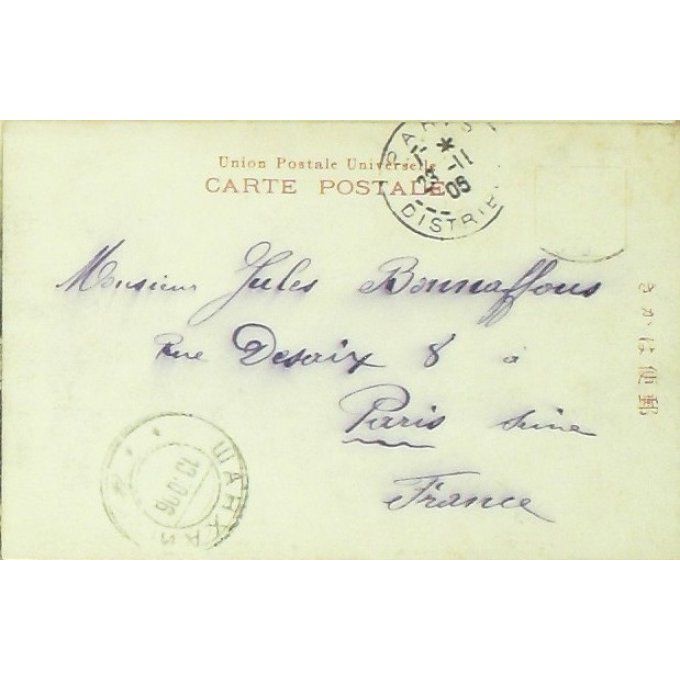 Union Postale Universelle
CARTE POSTALE
PARIS
23 -11
06
DISTRIB
Monsieur Jules Bonnaffous
Rue Desaix 8 à
Paris Seine
France
きがは便郵
ШАНХАЙ
13 06